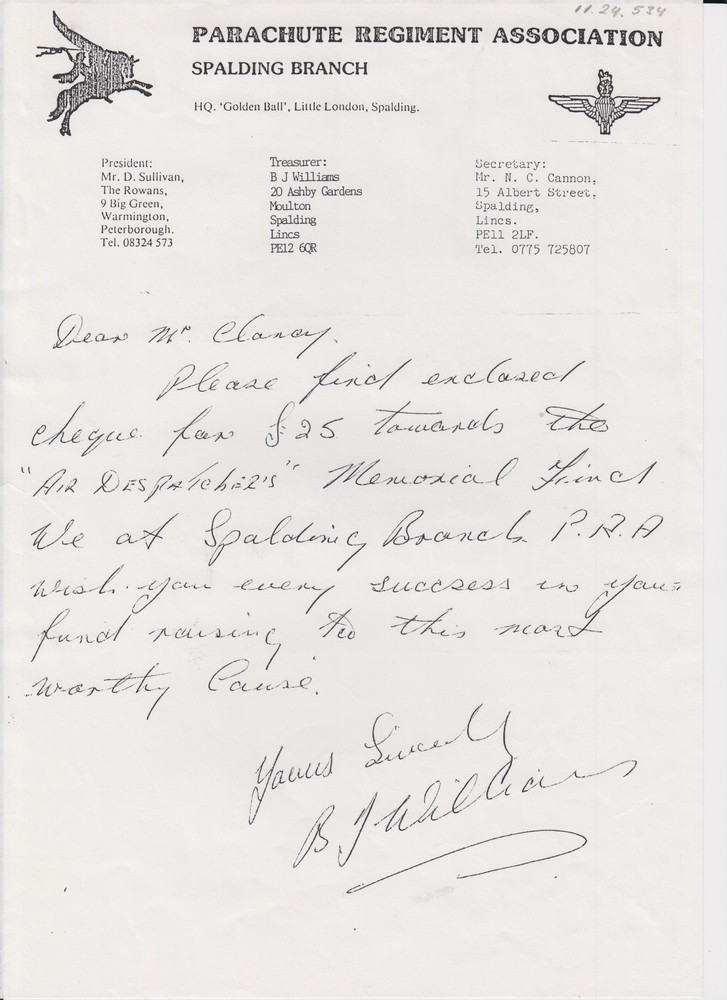 11.24.534
PARACHUTE REGIMENT ASSOCIATION
SPALDING BRANCH
HQ. 'Golden Ball', Little London, Spalding.
President:
Mr. D. Sullivan,
The Rowans,
9 Big Green,
Warmington,
Peterborough.
Tel. 08324 573
Treasurer:
B J Williams
20 Ashby Gardens
Moulton
Spalding
Lincs
PE12 6QR
Secretary:
Mr. N. C. Cannon,
15 Albert Street,
Spalding,
Lincs.
PE11 2LF.
Tel. 0775 725807
Dear Mr. Clancy.
Please find enclosed
cheque for £25 towards the
"AIR DESPATCHER'S" Memorial Fund
We at Spalding Branch P.R.A
wish you every success in your
fund raising to this most
worthy Cause.
Yours Sincerely
B J Williams